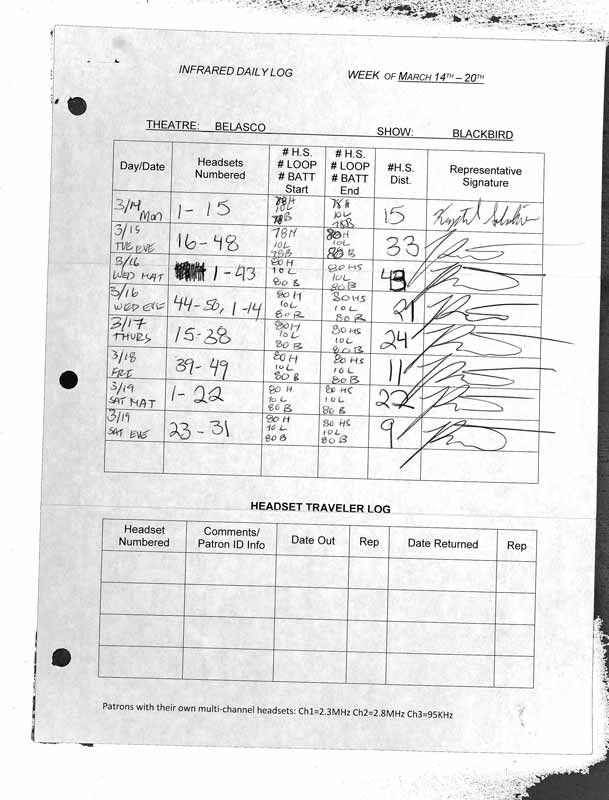 INFRARED DAILY LOG WEEK OF MARCH 14TH – 20TH
THEATRE: BELASCO SHOW: BLACKBIRD
Day/Date Headsets Numbered # H.S. # LOOP # BATT Start # H.S. # LOOP # BATT End #H.S. Dist. Representative Signature
3/14 Mon 1-15 78H 10L 78B 78H 10L 78B 15
3/15 TUE EVE 16-48 78H 10L 78B 80H 10L 80B 33
3/16 WED MAT 1-43 80H 10L 80B 80HS 10L 80B 43
3/16 WED EVE 44-50, 1-14 80H 10L 80B 80HS 10L 80B 21
3/17 THURS 15-38 80H 10L 80B 80HS 10L 80B 24
3/18 FRI 39-49 80H 10L 80B 80HS 10L 80B 11
3/19 SAT MAT 1-22 80H 10L 80B 80HS 10L 80B 22
3/19 SAT EVE 23-31 80H 10L 80B 80HS 10L 80B 9
HEADSET TRAVELER LOG
Headset Numbered Comments/ Patron ID Info Date Out Rep Date Returned Rep
Patrons with their own multi-channel headsets: Ch1=2.3MHz Ch2=2.8MHz Ch3=95KHz